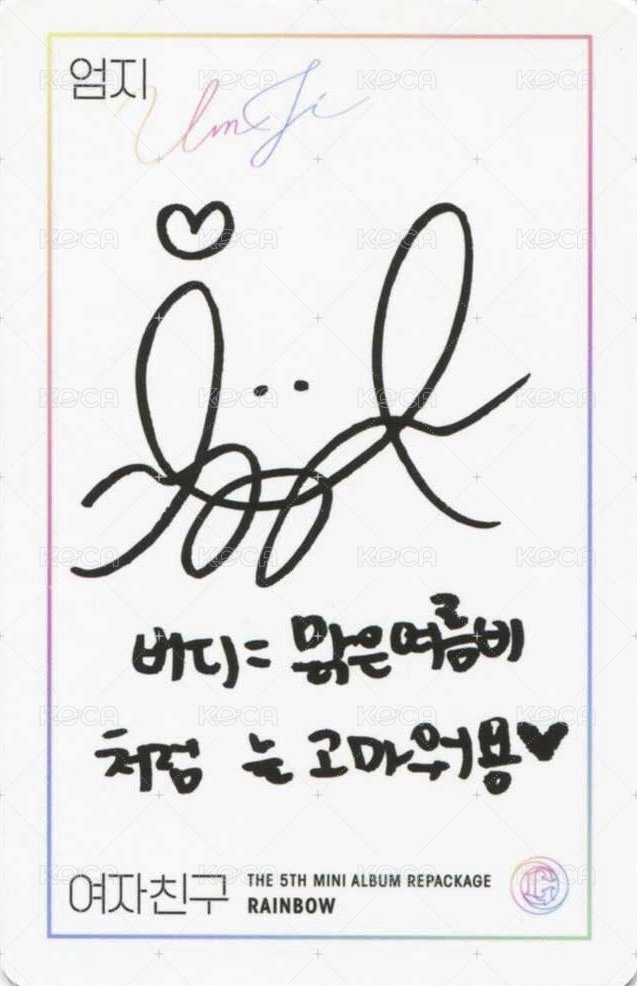 엄지
UmJi
버디는 맑은여름비
처럼 늘 고마워용♥
여자친구 THE 5TH MINI ALBUM REPACKAGE
RAINBOW
G
KOCA